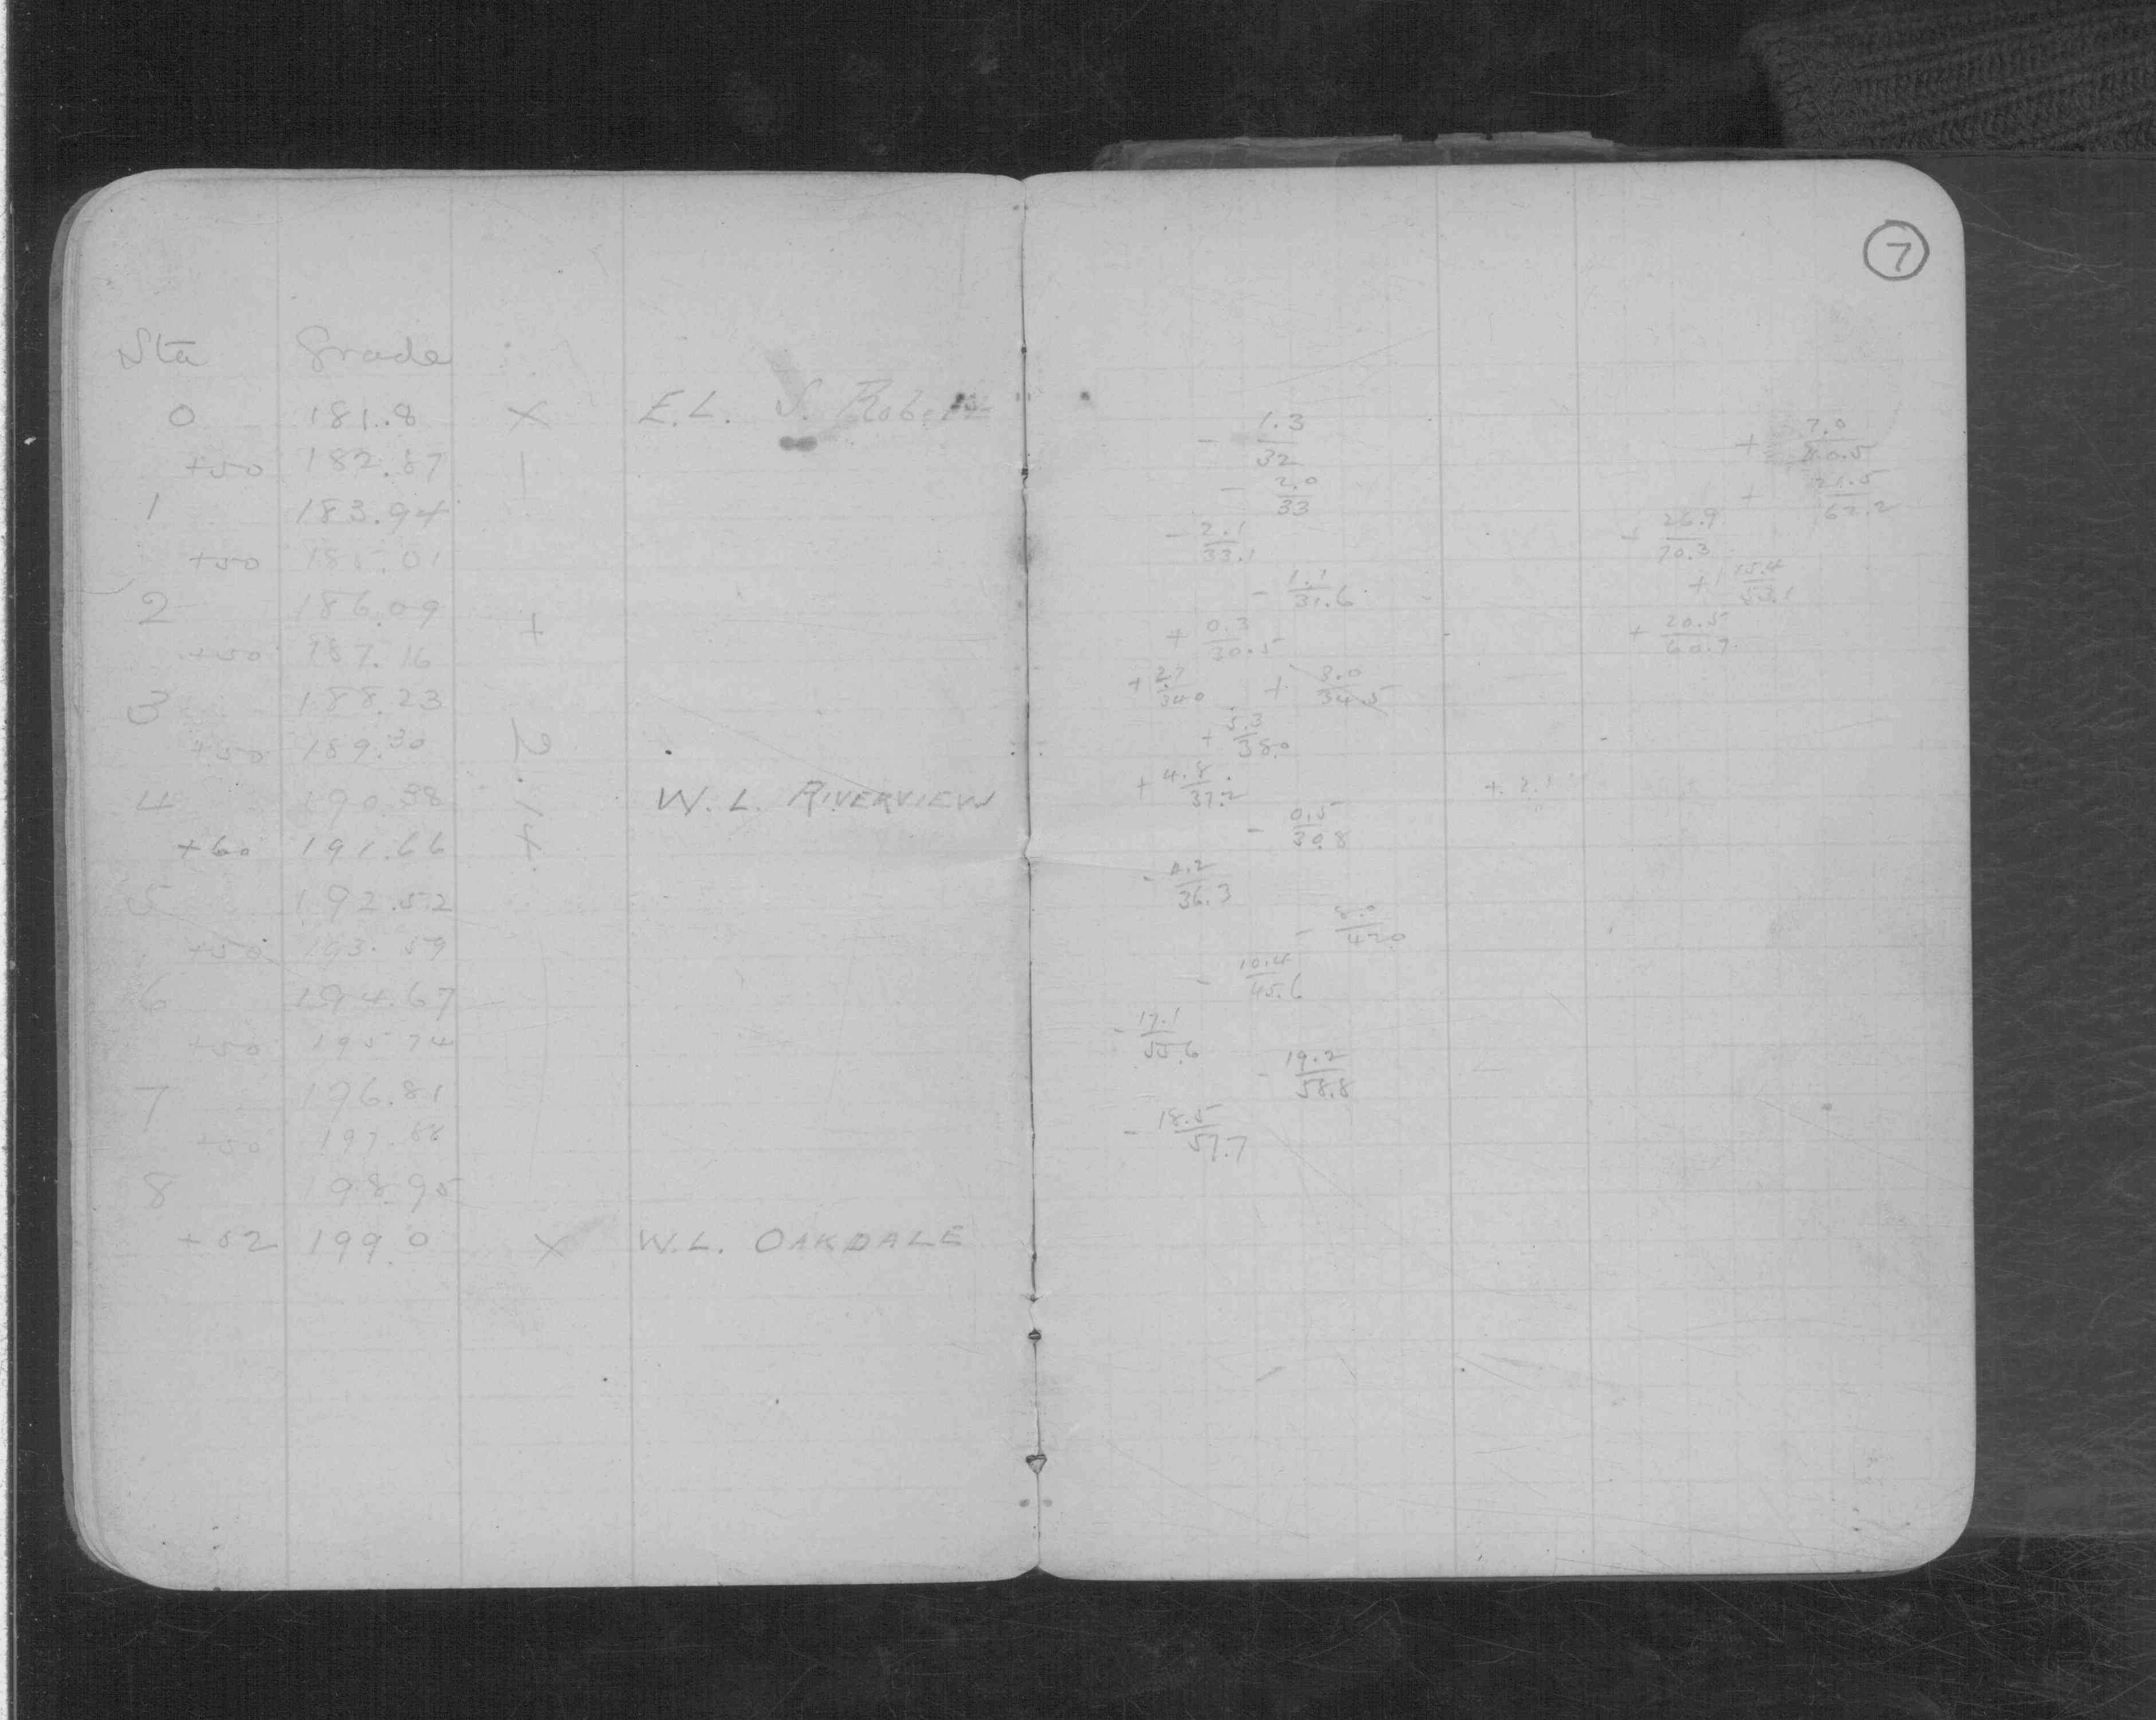 7
Sta Grade
0 181.8 X E.L. S. Robert
+50 182.87
1 183.94
+50 185.01
2 186.09
+50 187.16
3 188.23
+50 189.30
4 190.38 W.L. RIVERVIEW
+60 191.66
5 192.52
+50 193.59
6 194.67
+50 195.74
7 196.81
+50 197.88
8 198.95
+52 199.0 X W.L. OAKDALE
+ 2.14
- 1.3/32 + 7.0/40.5
- 2.0/33 + 21.5/62.2
- 2.1/33.1 + 26.9/70.3
- 1.1/31.6 + 15.4/53.1
+ 0.3/30.5 + 20.5/60.7
+ 2.7/34.0 + 3.0/34.5
+ 5.3/38.0
+ 4.8/37.2 + 2.1
- 0.5/30.8
- 4.2/36.3
- 8.0/42.0
- 10.4/45.6
- 17.1/55.6
- 19.2/58.8
- 18.5/57.7